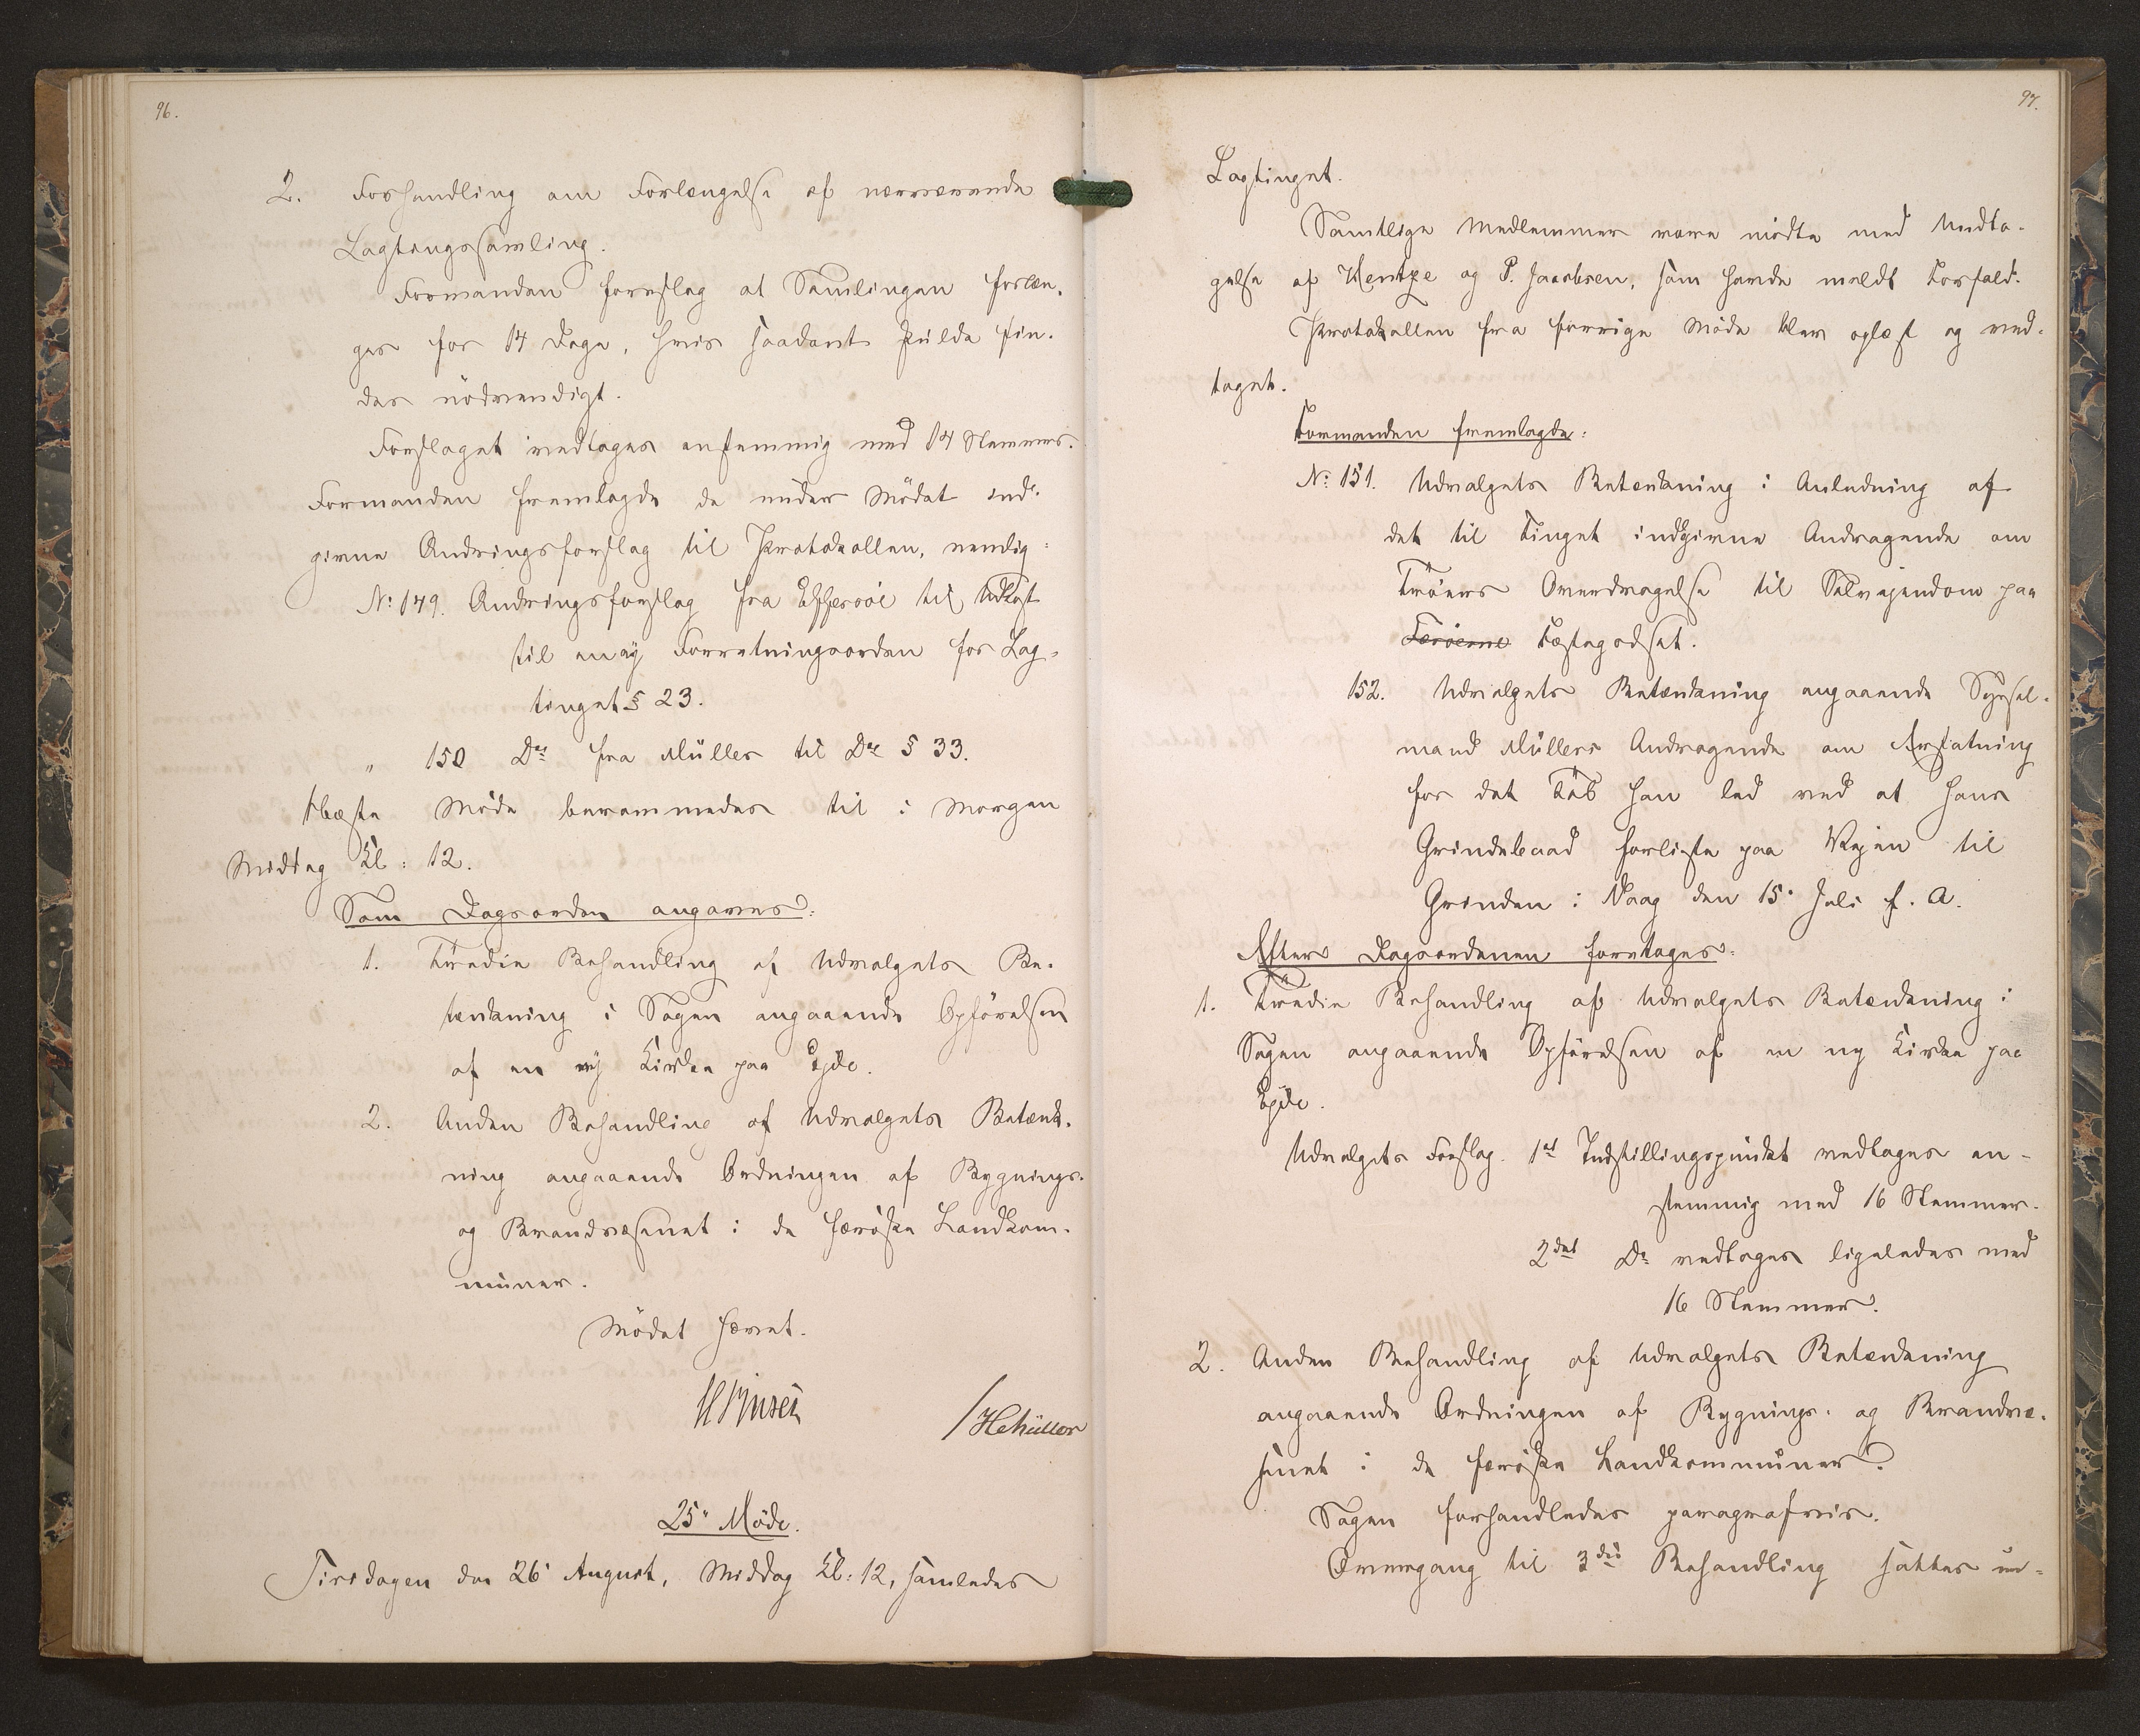 96.
2. Forhandling om Forlængelse af nærværende
Lagtingssamling.
Formanden foreslog at Samlingen forlæn-
ges for 14 Dage, hvis saadant skulde fin-
des nödvendigt.
Forslaget vedtoges enstemmig med 14 Stemmer.
Formanden fremlagde de under Mödet ind-
givne Ændringsforslag til Protokollen, nemlig:
No 149. Ændringsforslag fra Effersöe til Udkast
til en ny Forretningsorden for Lag-
tinget § 23.
" 150 Do fra Müller til Do § 33.
Næste Möde berammedes til i Morgen
Middag Kl: 12.
Som Dagsorden angaves:
1. Tredie Behandling af Udvalgets Be-
tænkning i Sagen angaaende Opförelsen
af en ny Kirke paa Ejde.
2. Anden Behandling af Udvalgets Betænk-
ning angaaende Ordningen af Bygnings-
og Brandvæsenet i de færöske Landkom-
muner.
Mödet hævet.
/HMüller
25' Möde.
Tirsdagen den 26' August, Middag Kl: 12, samledes
97.
Lagtinget.
Samtlige Medlemmer vare mödte med Undta-
gelse af Kentze og P. Jacobsen, som havde meldt Forfald.
Protokollen fra forrige Möde blev oplæst og ved-
taget.
Formanden fremlagde:
No 151. Udvalgets Betænkning i Anledning af
det til Tinget indgivne Andragende om
Tröers Overdragelse til Selvejendom paa
Færöerne Fæstegodset.
152. Udvalgets Betænkning angaaende Syssel-
mand Müllers Andragende om Erstatning
for det Tab han led ved at hans
Grindebaad forliste paa Vejen til
Grinden i Vaag den 15' Juli f. A.
Efter Dagsordenen foretoges:
1. Tredie Behandling af Udvalgets Betænkning i
Sagen angaaende Opförelsen af en ny Kirke paa
Ejde.
Udvalgets Forslag. 1st Indstillingspunkt vedtoges en-
stemmig med 16 Stemmer.
2det Do vedtoges ligeledes med
16 Stemmer.
2. Anden Behandling af Udvalgets Betænkning
angaaende Ordningen af Bygnings- og Brandvæ-
senet i de færöske Landkommuner.
Sagen forhandledes paragrafvis.
Overgang til 3die Behandling sattes un-